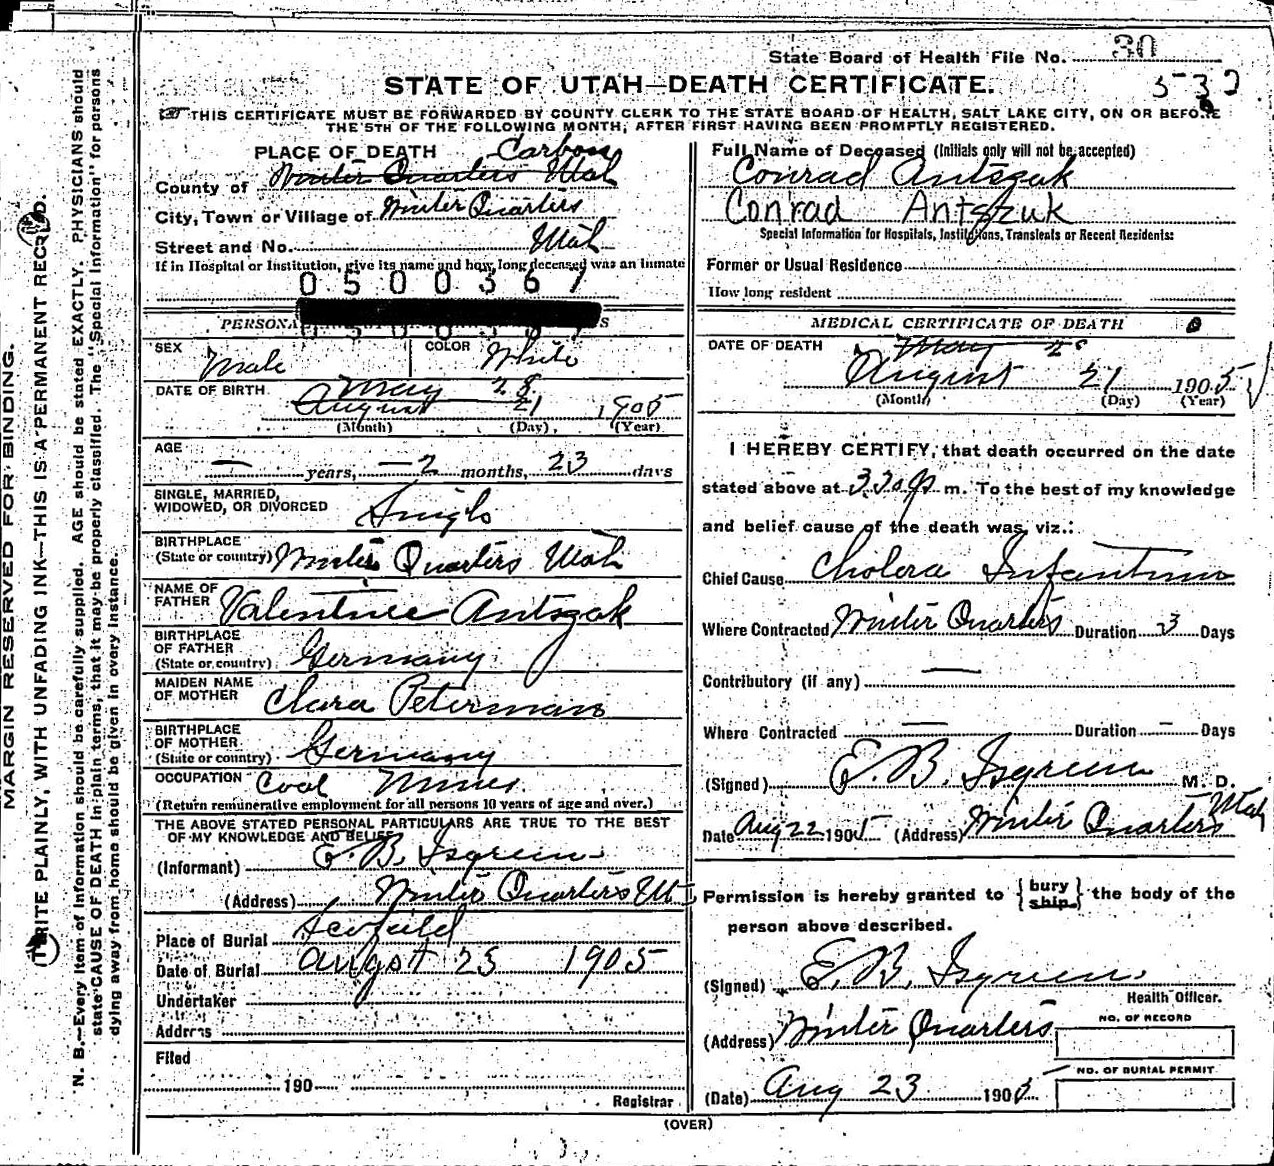 State Board of Health File No. 30
530
STATE OF UTAH—DEATH CERTIFICATE.
THIS CERTIFICATE MUST BE FORWARDED BY COUNTY CLERK TO THE STATE BOARD OF HEALTH, SALT LAKE CITY, ON OR BEFORE
THE 5TH OF THE FOLLOWING MONTH, AFTER FIRST HAVING BEEN PROMPTLY REGISTERED.
MARGIN RESERVED FOR BINDING.
WRITE PLAINLY, WITH UNFADING INK—THIS IS A PERMANENT RECORD.
N. B.—Every item of Information should be carefully supplied. AGE should be stated EXACTLY. PHYSICIANS should
state CAUSE OF DEATH in plain terms, that it may be properly classified. The "Special Information" for persons
dying away from home should be given in every instance.
PLACE OF DEATH Carbon
County of Winter Quarters Utah
City, Town or Village of Winter Quarters
Street and No. Utah
If in Hospital or Institution, give its name and how long deceased was an inmate
0500367
PERSONA S
SEX Male COLOR White
DATE OF BIRTH May 28
August 21 1905
(Month) (Day) (Year)
AGE
— years, — 2 months, 23 days
SINGLE, MARRIED,
WIDOWED, OR DIVORCED Single
BIRTHPLACE
(State or country) Winter Quarters Utah
NAME OF
FATHER Valentine Antszak
BIRTHPLACE
OF FATHER
(State or country) Germany
MAIDEN NAME
OF MOTHER Clara Peterman
BIRTHPLACE
OF MOTHER
(State or country) Germany
OCCUPATION Coal Miner
(Return remunerative employment for all persons 10 years of age and over.)
THE ABOVE STATED PERSONAL PARTICULARS ARE TRUE TO THE BEST
OF MY KNOWLEDGE AND BELIEF
(Informant) E. B. Isgreen
(Address) Winter Quarters Ut
Place of Burial Scofield
Date of Burial augost 23 1905
Undertaker
Address
Filed
190
Registrar
Full Name of Deceased (Initials only will not be accepted)
Conrad Antszak
Conrad Antszuk
Special Information for Hospitals, Institutions, Transients or Recent Residents:
Former or Usual Residence
How long resident
MEDICAL CERTIFICATE OF DEATH
DATE OF DEATH May 28
August 21 1905
(Month) (Day) (Year)
I HEREBY CERTIFY, that death occurred on the date
stated above at 3 30 p m. To the best of my knowledge
and belief cause of the death was, viz.:
Chief Cause Cholera Infantum
Where Contracted Winter Quarters Duration 3 Days
Contributory (if any) —
Where Contracted — Duration — Days
(Signed) E. B. Isgreen M. D.
Date Aug 22 1905 (Address) Winter Quarters Utah
Permission is hereby granted to {bury ship} the body of the
person above described.
(Signed) E. B. Isgreen
Health Officer.
(Address) Winter Quarters
NO. OF RECORD
(Date) Aug 23 1905
NO. OF BURIAL PERMIT
(OVER)